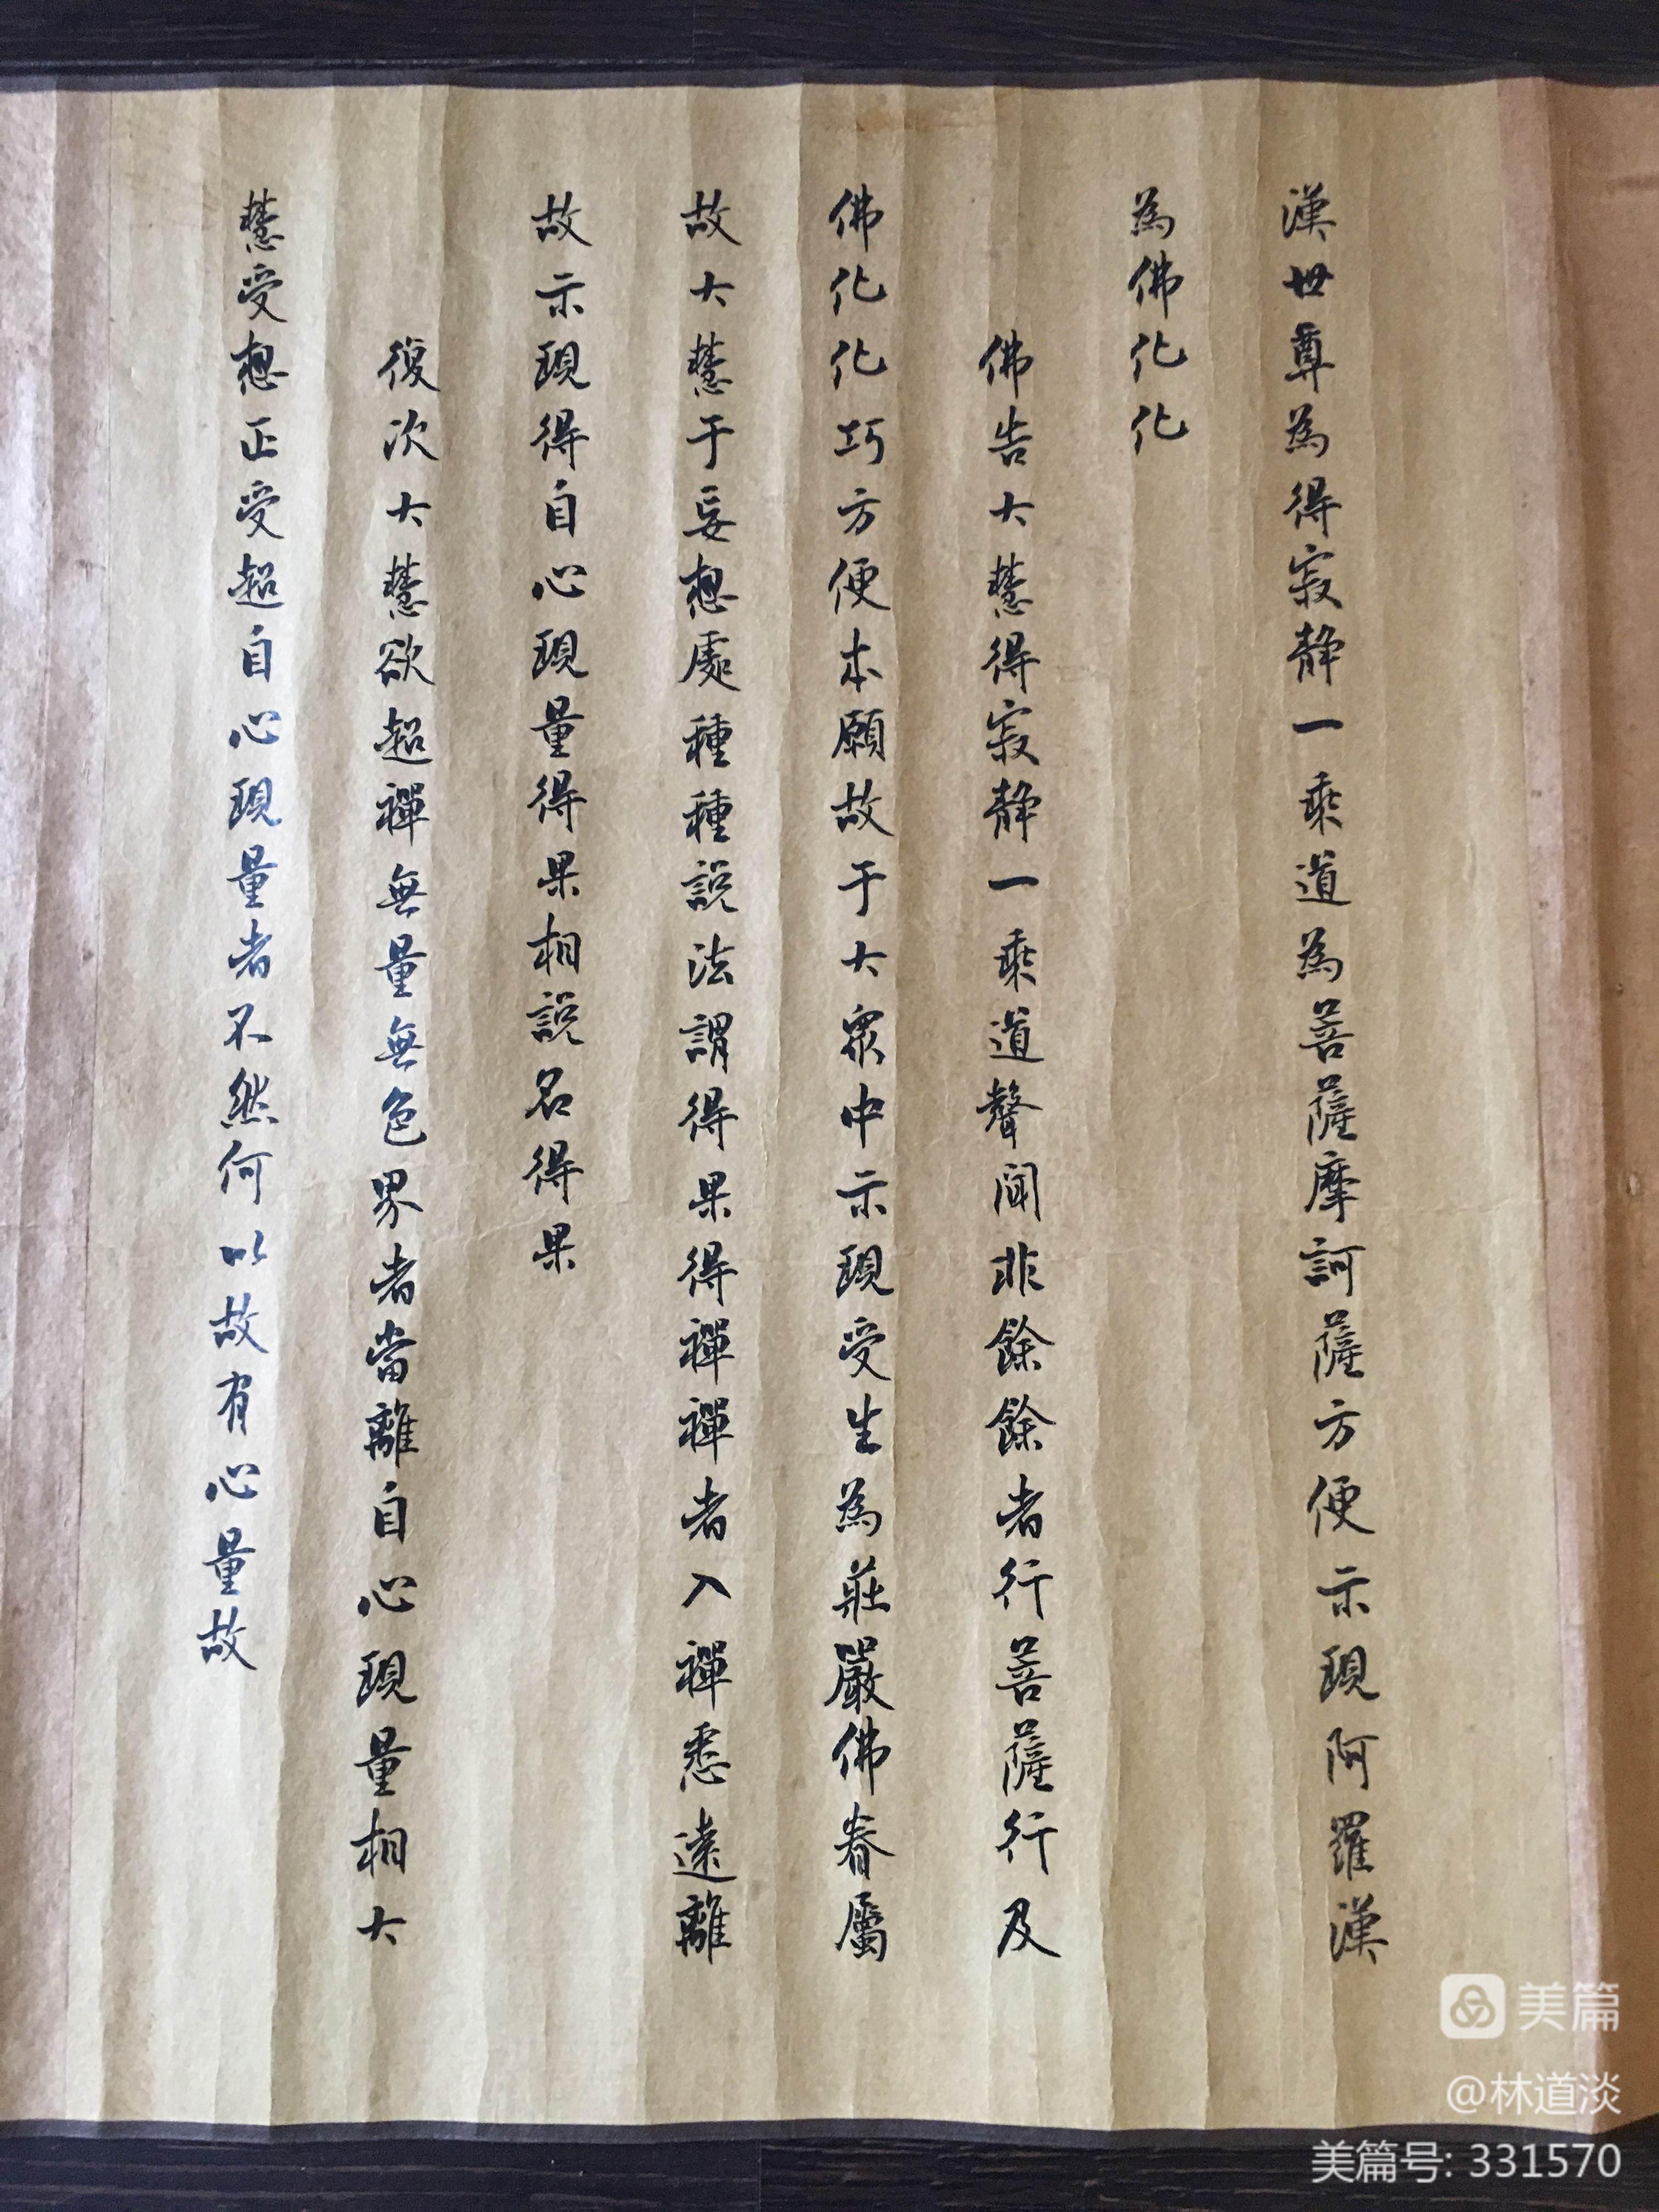 漢世尊為得寂靜一乘道為菩薩摩訶薩方便示現阿羅漢
為佛化化
佛告大慧得寂靜一乘道聲聞非餘餘者行菩薩行及
佛化化巧方便本願故于大眾中示現受生為莊嚴佛眷屬
故大慧于妄想處種種說法謂得果得禪禪者入禪悉遠離
故示現得自心現量得果相說名得果
復次大慧欲超禪無量無色界者當離自心現量相大
慧受想正受超自心現量者不然何以故有心量故
美篇
@林道淡
美篇号: 331570